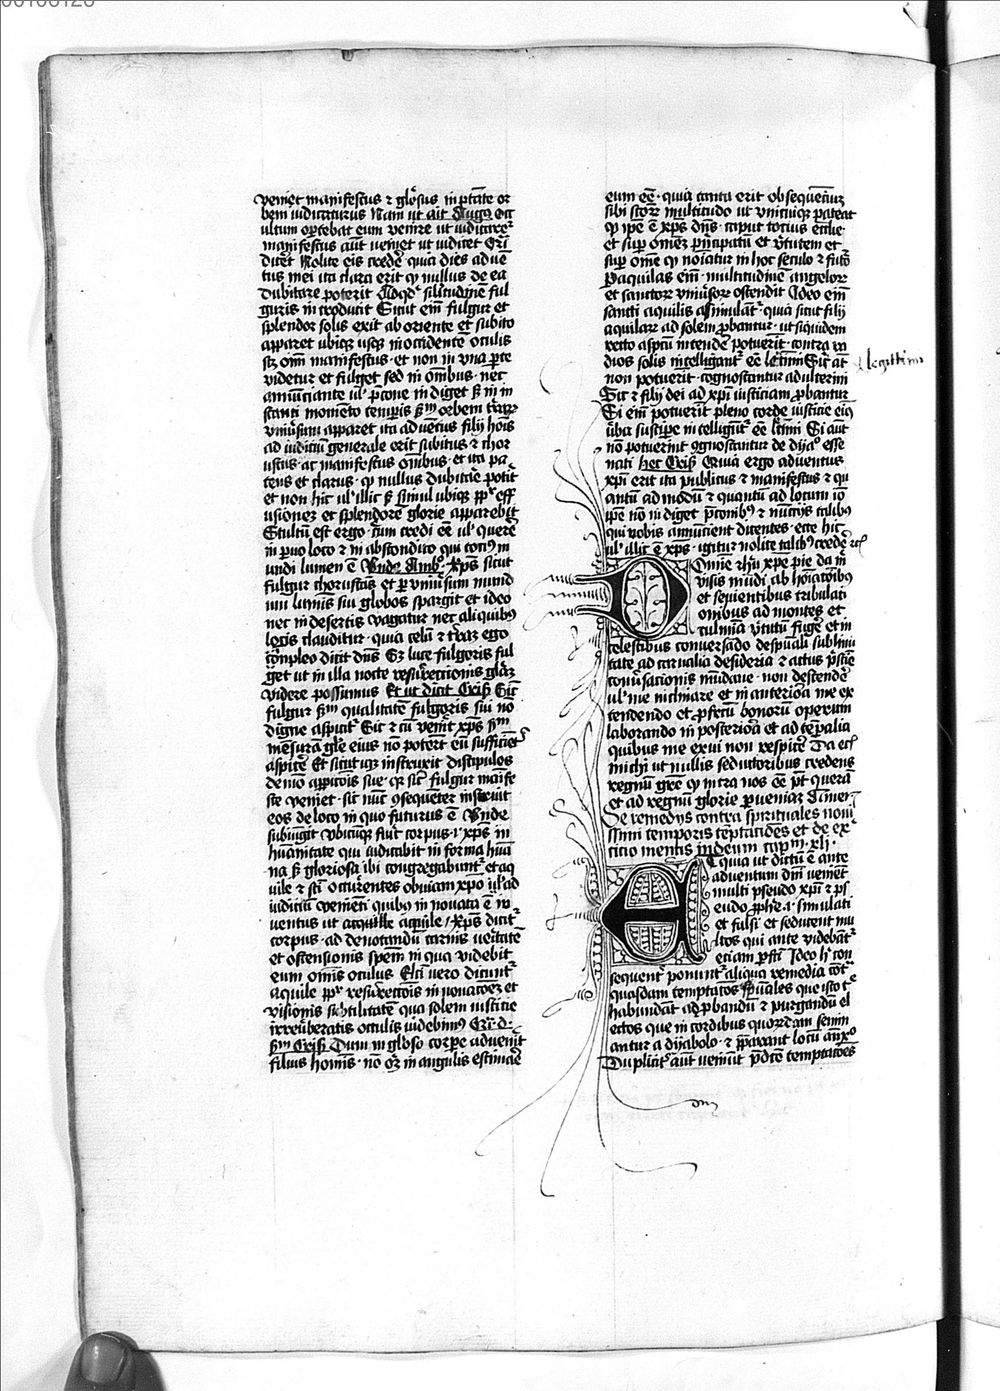 veniet manifestus ⁊ gl̄osus in ptāte or
bem iudicaturus Nam ut ait Augꝰ Occ
ultum oꝑtebat eum venire ut iudicaretˀ
manifestus aūt veniet ut iudicet Cri
dicēt Nolite eis credē quia dies adue
tus mei ita clara erit ꝙ nullus de ea
dubitare poterit similitudinē ful
guris introducit Sicut eni fulgur et
splendor solis exit ab oriente et subito
apparet ubiqꝫ usqꝫ in occidente oculis
omī manifestus et non in vna ꝑte
videtur et fulget sed in omibus nec
annūciante ul' p̄cone indiget sꝫ in in
stanti momēto tempis orbem
vniūsum apparet ita aduetus filij hois
ad iudiciū generale erit subitus ⁊ chor
uscus ac manifestus omibus et ita pa
tens et clarus ꝙ nullus dubitare potit
et non hic ul' illic sꝫ simul ubiqꝫ eff
usionez et splendorē glorie apparebit
Stultū est ergo eum credi eē ul' querē
in ꝑuo loco ⁊ in abscondito qui totiꝰ m
undi lumen ē Vnde Ambꝰ xp̄s sicut
fulgur choruscus et ꝑ vniūsum mund
um luminis sui globos spargit et ideo
nec in desertis vagatur nec aliquibꝰ
locis clauditur quia celū ⁊ t̄raꝫ ego
cōpleo dicit dns luce fulgoris ful
get ut in illa nocte resurrectionis gl̄aꝫ
videre possimus Et ut dicit Crisꝰ Sic
fulgur qualitatē fulgoris sui nō
digne aspicitˀ Sic ⁊ cū venit xp̄s
mēsurā gl̄e eius nō poterit eū sufficiēt
aspicē Et sicut instruxit discipulos
de mō aꝑicōis sue fulgur manife
ste veniet sic nūc ꝯsequēter instruit
eos de loco in quo futurus ē Vnde
subiūgit vbicūqꝫ fuīt corpus xp̄s in
hūanitate qui iudicabit in forma huā
na sꝫ gloriosa ibi congregabuntˀ et aq
uile ⁊ sc̄i occurentes obuiam xpo ad
iudiciū venient quibꝰ innouata ē iu
ventus ut aquile xp̄s dicitˀ
corpus ad denotandū carnis veritatē
et ostensionis spem in qua videbit
eum omnis oculus Elc̄i vero dicuntˀ
aquile resurectōis innouacōez et
visionis subtilitatē qua solem iusticie
irreuerberatis oculis videbimꝰ
Crisꝰ Dum in gl̄oso corpe aduenit
filius homis nō in angulis estimare
eum eē quia tanta erit obsequentiū
sibi sc̄orꝫ multitudo ut vnicuiqꝫ pateat
ꝙ ipe ē xp̄s dn̄s caput tocius ecclie
et suꝑ omēz pncipatū et v̄tutem et
suꝑ omē ꝙ noiatur in hoc seculo ⁊ futꝰ
Paquilas eni multitudinē angelorꝫ
et sanctorꝫ vniūsorꝫ ostendit Ideo eni
sancti aquilis assimulātˀ quia sicut filij
aquilarꝫ ad solem ꝓbantur ut siquidem
recto aspcū intendē potuerit contra ra
dios solis intelligantˀ eē l̄timi Sic aūt
non potuerit cognoscantur adulterini
Sic ⁊ filij dei ad xp̄i iusticiam ꝓbantur
Si eni potuerit pleno corde iusticie eiꝰ
ūba suscipe intelligūtˀ eē l̄timi Si aūt
nō potuerint ꝯgnoscantur de dija° esse
nati hec Crisꝰ Quia ergo aduentus
xp̄i erit ita publicus ⁊ manifestus ⁊ qu
antū ad modū ⁊ quantū ad locum iō
ipe nō indiget p̄conibꝰ ⁊ nūcijs talibꝰ
qui vobis annūcient dicentes ecce hic
ul' illic ē xp̄s igitur nolite talibꝰ credē
Omīe ihū xpe pie da in
visis mūdi ab hoīacōibꝰ
et seuientibus tribulati
onibus ad montes et
culmia v̄tutū fugē et in
celestibus conuersādo despūali sublimi
tate ad carnalia desideria ⁊ actus pristie
conūsationis mūdane non descendē
ul' me inclinare et in anteriora me ex
tendendo et ꝓfectū bonorū operum
laborando in posteriora et ad tēpalia
quibus me exui non respicē Da
michi ut nullis seductoribus credens
regnū ꝙ intra nos eē pt querā
et ad regnū glorie ꝑueniaꝫ Amen
De remedijs contra spirituales noui
ssimi temporis teptacōēs et de ex
cicio mentis in deum capm xli
Et quia ut dictū ē ante
aduentum dni venient
multi pseudo xpi ⁊ ps
eudo ꝓphe simulati
et falsi et seducent mu
ltos qui ante videbātˀ
eciam ꝑfc̄i Ideo hˀ con
sequentˀ ponuntˀ aliqua remedia cōt
quasdam temptacōs spūales que isto t
habundāt ad ꝓbandū ⁊ purgandū el
ectos que in cordibus quorūdam semi
antur a dyabolo ⁊ p̄parant locū
Duplicitˀ aūt veniūt p̄dcē temptacōēs
legittimi